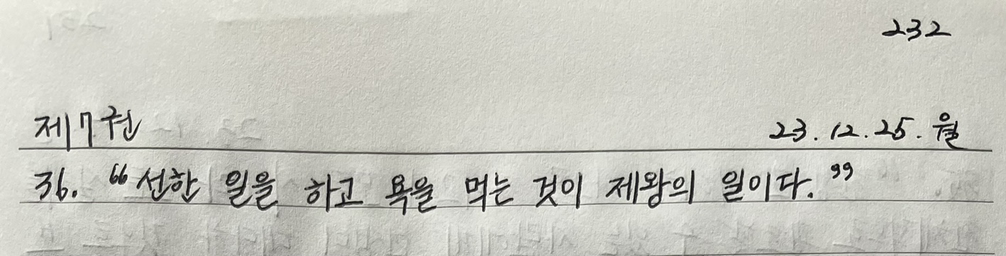 232
제7권 23.12.25.월
36. “선한 일을 하고 욕을 먹는 것이 제왕의 일이다.”